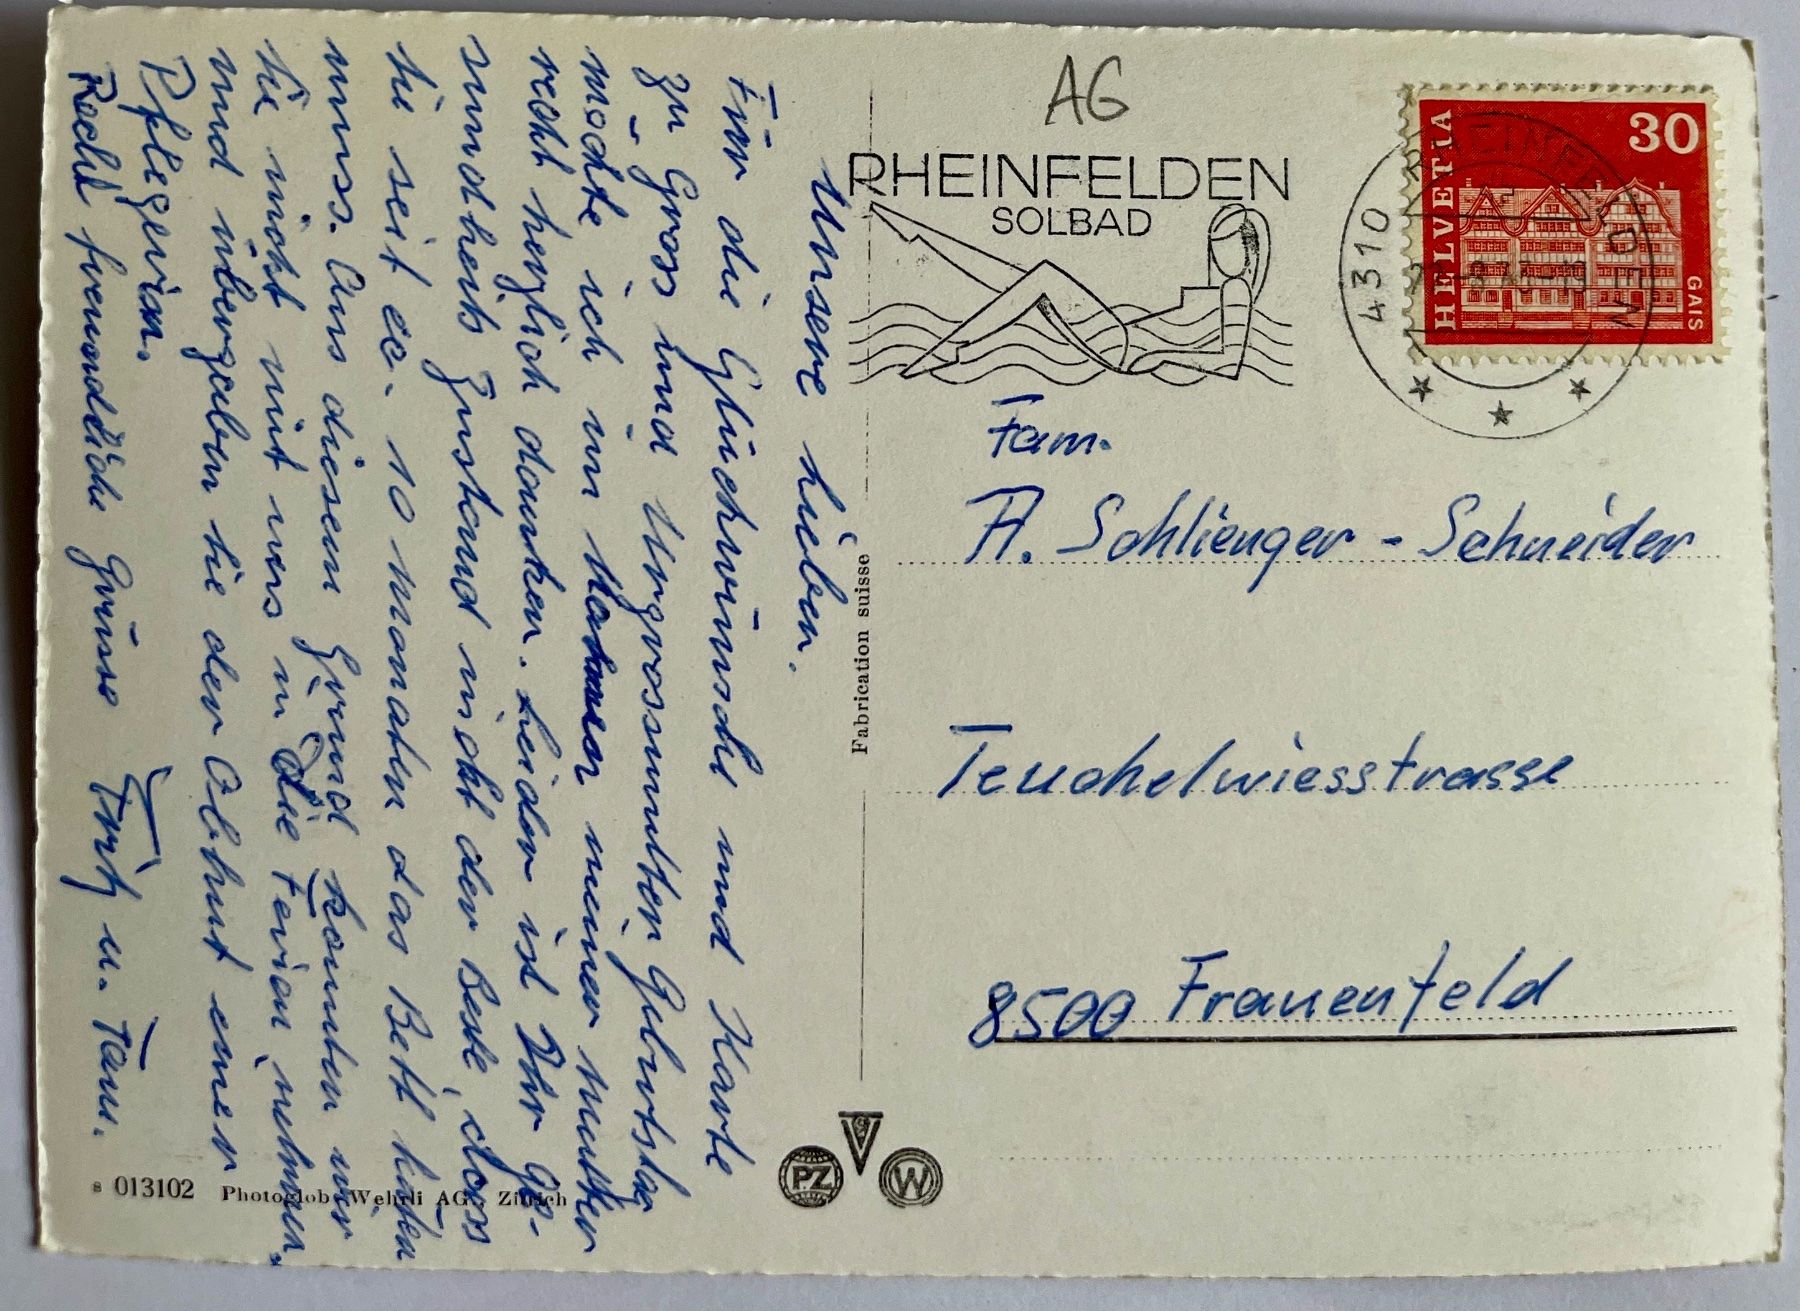 Unsere Lieben.
Für die Glückwünsche und Karte
zu Gross und Urgrossmutter Geburtstag
möchte ich im Namen meiner Mutter
recht herzlich danken. Leider ist Ihr Ge-
sundheits Zustand nicht der Beste, dass
sie seit ca. 10 Monaten das Bett hüten
muss. Aus diesem Grund konnten wir
sie nicht mit uns in die Ferien nehmen
und übergaben sie der Obhut einer
Pflegerin.
Recht freundliche Grüsse Fritz u. Fam.
AG
RHEINFELDEN
SOLBAD
4310 RHEINFELDEN
HELVETIA
30
GAIS
Fam.
A. Schlienger - Schneider
Teuchelwiesstrasse
8500 Frauenfeld
Fabrication suisse
PZ
W
s 013102 Photoglob-Wehrli AG, Zürich